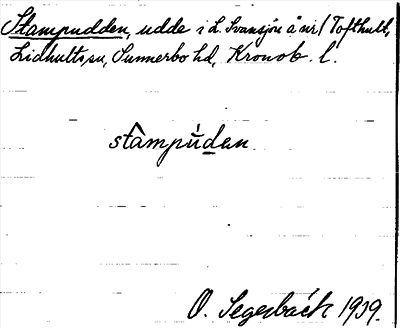 Stampudden, udde i L. Svansjön å nr 1 Tofthult,
Lidhults sn, Sunnerbo hd, Kronob. l.
stàmpu̇́dan
O. Segerbäck 1939.